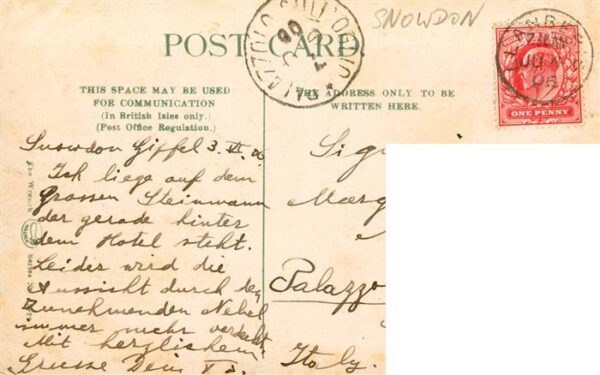 SNOWDON
POST CARD
THIS SPACE MAY BE USED
FOR COMMUNICATION
(In British Isles only.)
(Post Office Regulation.)
THE ADDRESS ONLY TO BE
WRITTEN HERE.
ONE PENNY
Snowdon Gipfel 3. VI. 06
Ich liege auf dem
Grossen Steinmann
der gerade hinter
dem Hotel steht.
Leider wird die
Aussicht durch den
Zunehmenden Nebel
immer mehr verdeckt.
Mit herzlichem
Grusse Dein
Sig
Marg
Palazzo
Italy.